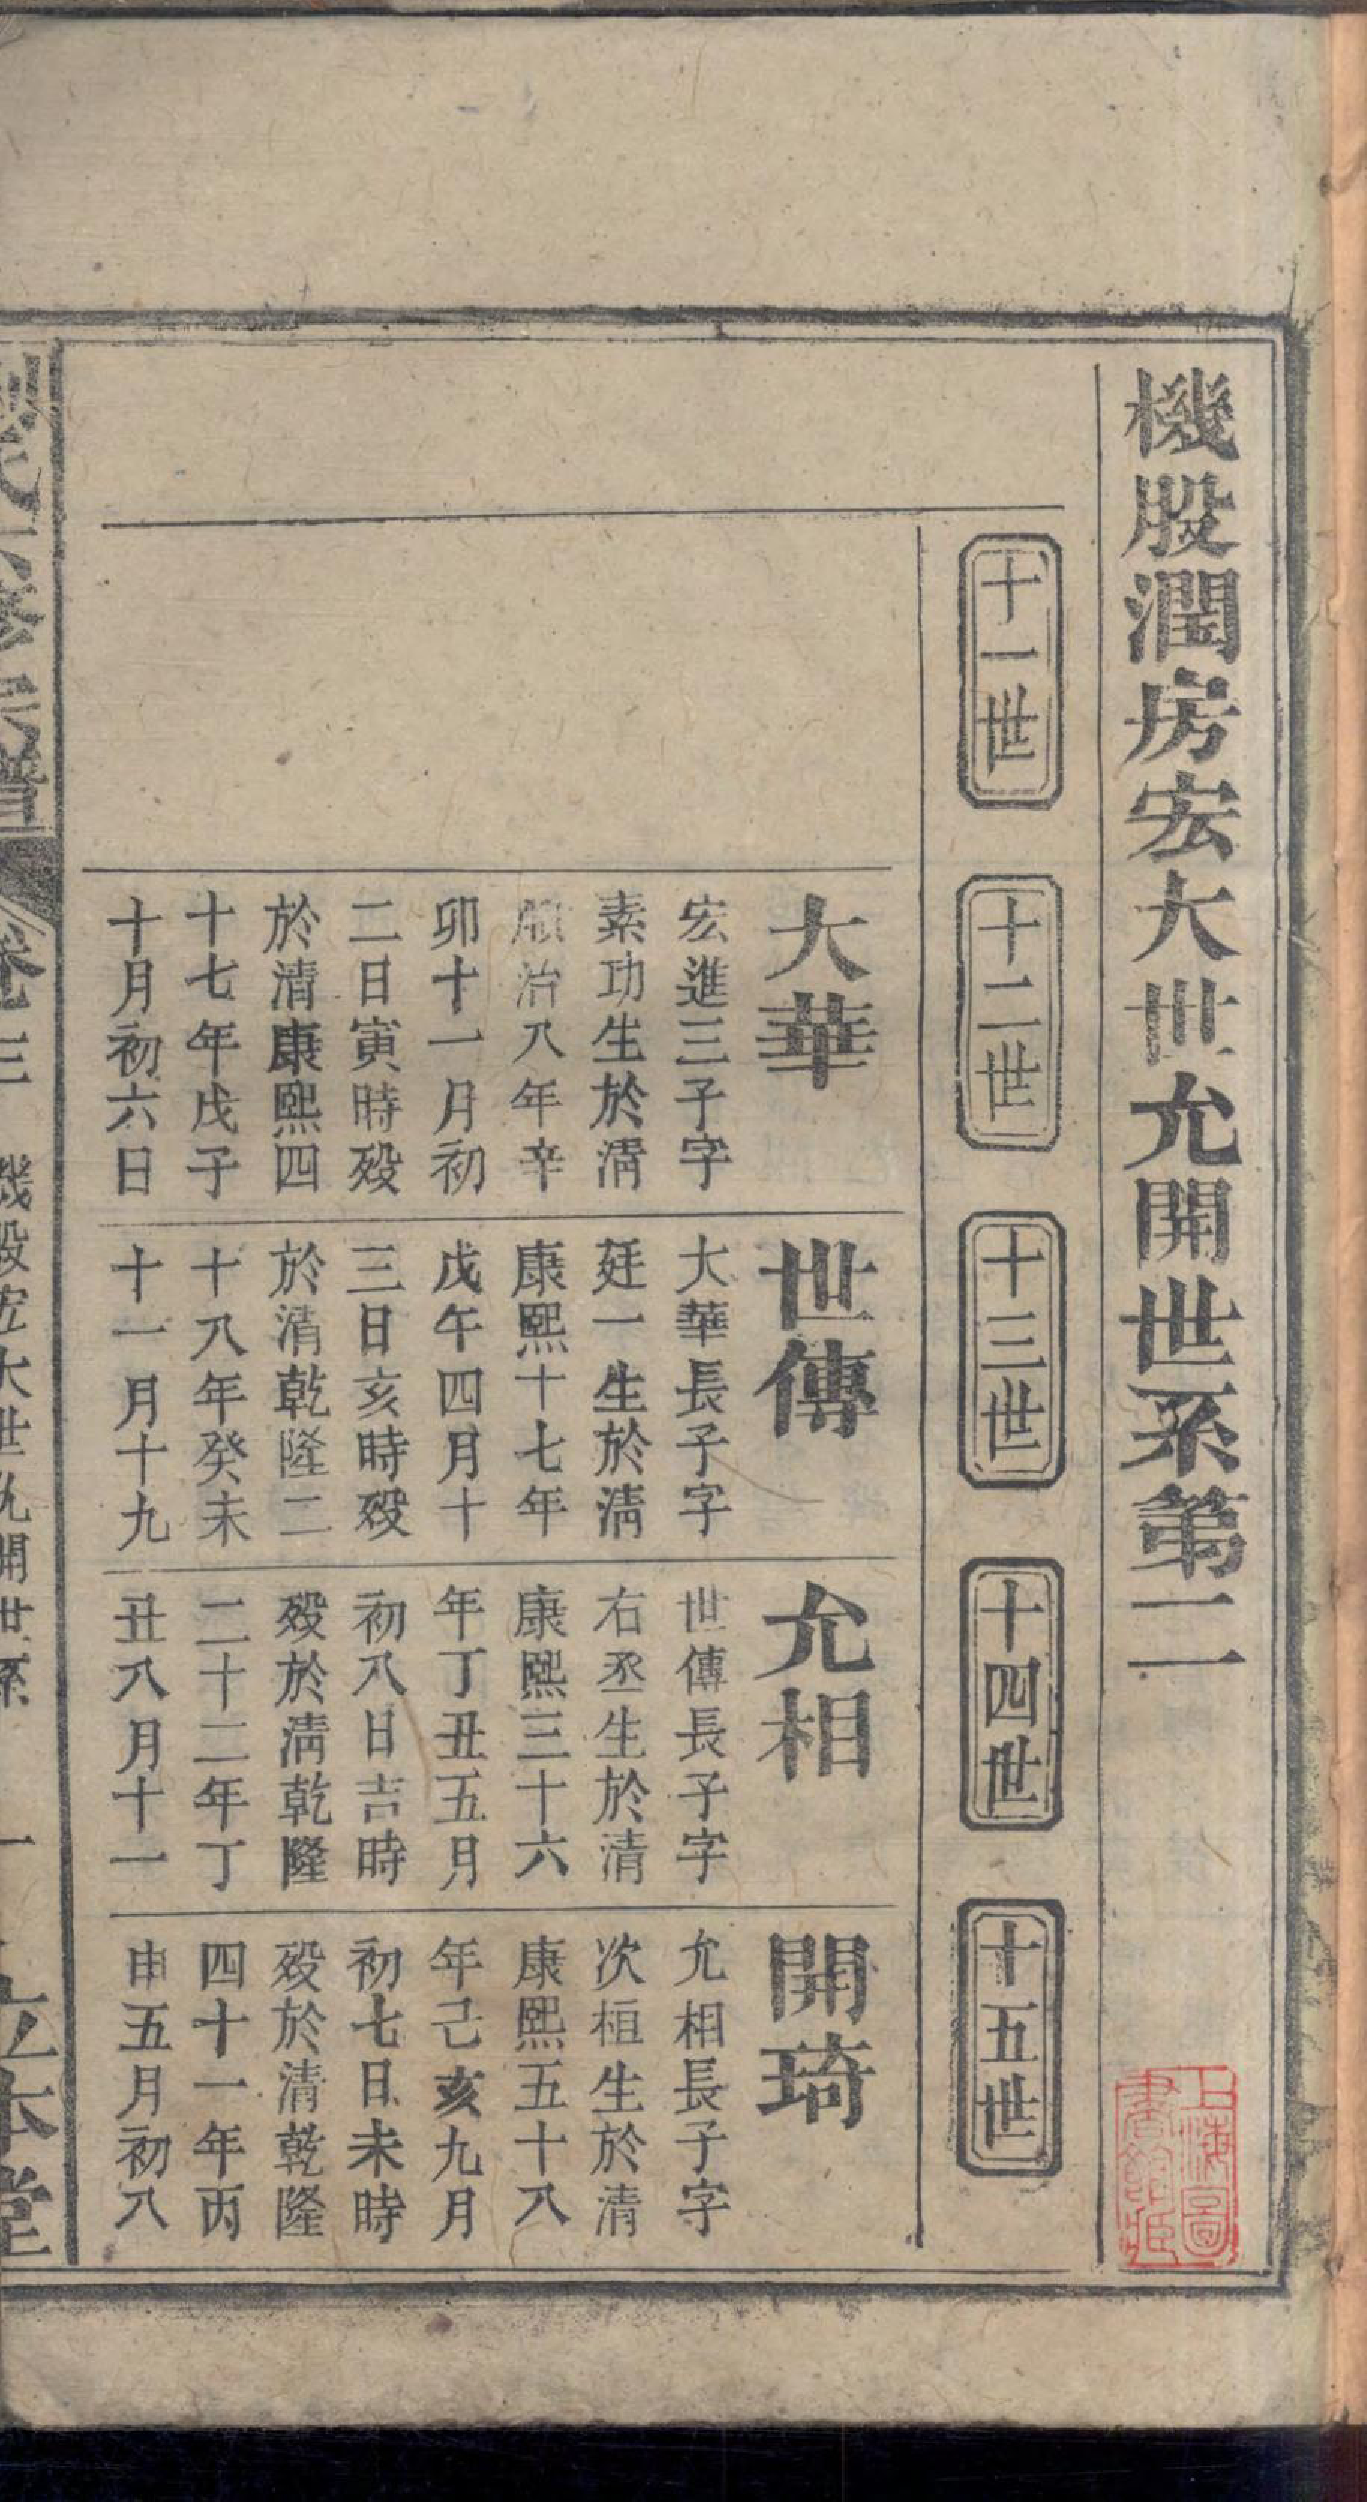 機股潤房宏大世允開世系第二
十一世
十二世
十三世
十四世
十五世
大華
宏進三子字
素功生於清
順治八年辛
卯十一月初
二日寅時歿
於清康熙四
十七年戊子
十月初六日
世傳
大華長子字
廷一生於清
康熙十七年
戊午四月十
三日亥時歿
於清乾隆二
十八年癸未
十一月十九
允相
世傳長子字
右丞生於清
康熙三十六
年丁丑五月
初八日吉時
歿於清乾隆
二十二年丁
丑八月十一
開琦
允相長子字
次桓生於清
康熙五十八
年己亥九月
初七日未時
歿於清乾隆
四十一年丙
申五月初八
卷三
機股宏大世允開世系
一
立本堂
上海圖
書館藏